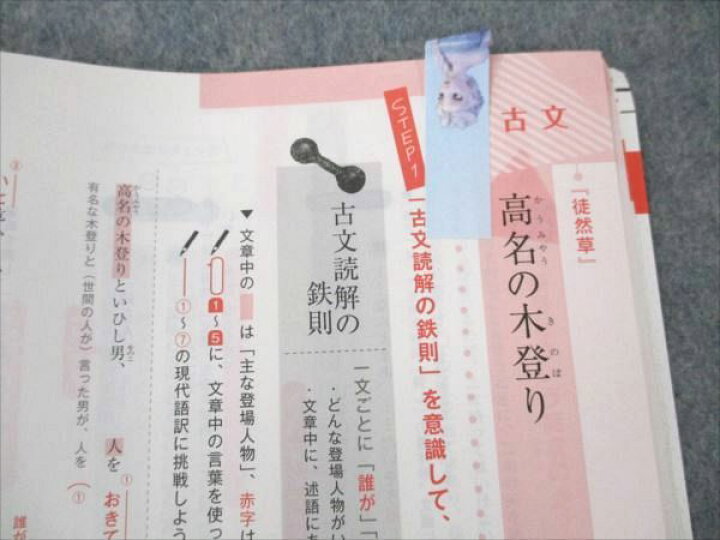 古文
『徒然草』
かうみやう きのぼ
高名の木登り
STEP1
「古文読解の鉄則」を意識して、
古文読解の
鉄則
一文ごとに「誰が」「
・どんな登場人物がい
・文章中に、述語にあ
▼文章中の は「主な登場人物」、赤字は
1〜5に、文章中の言葉を使っ
①〜⑦の現代語訳に挑戦しよう
高名の木登りといひし男、 人を おきて
有名な木登りと(世間の人が)言った男が、人を(①
誰が
③